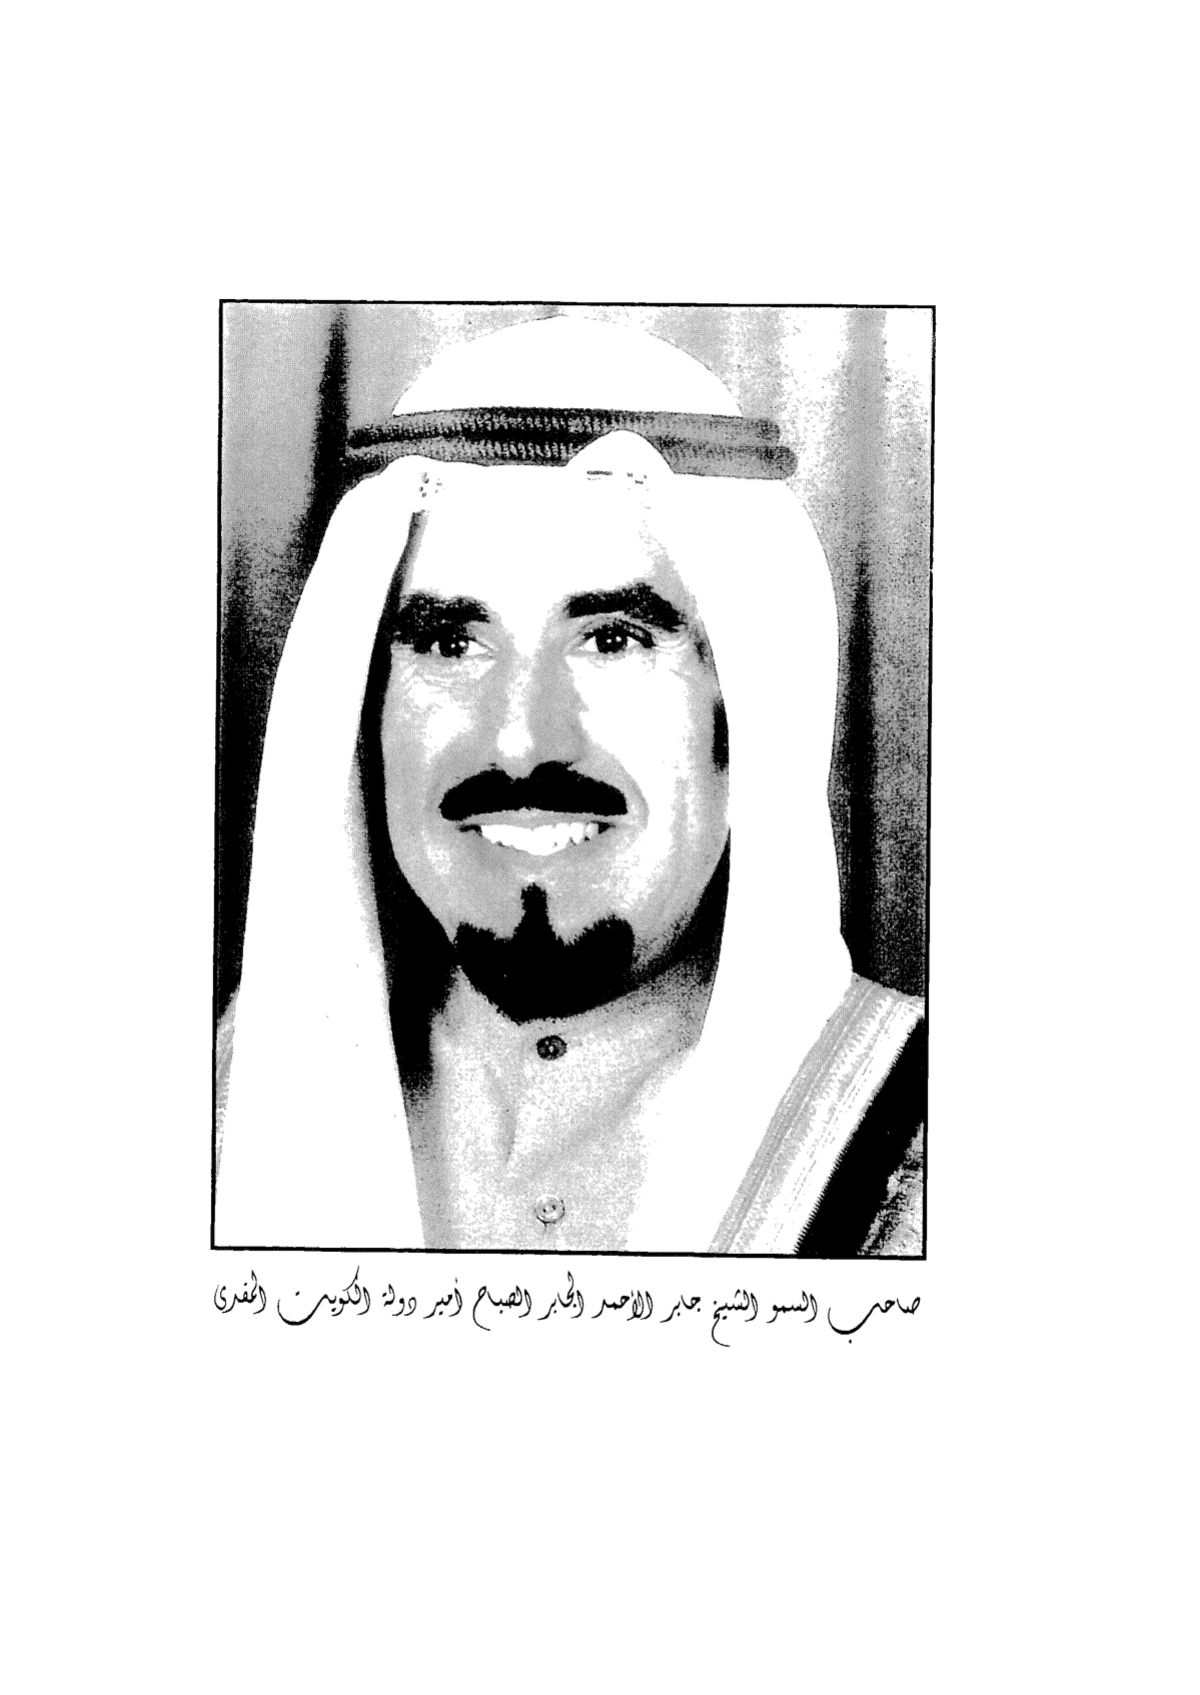 صاحب السمو الشيخ جابر الأحمد الجابر الصباح أمير دولة الكويت المفدى